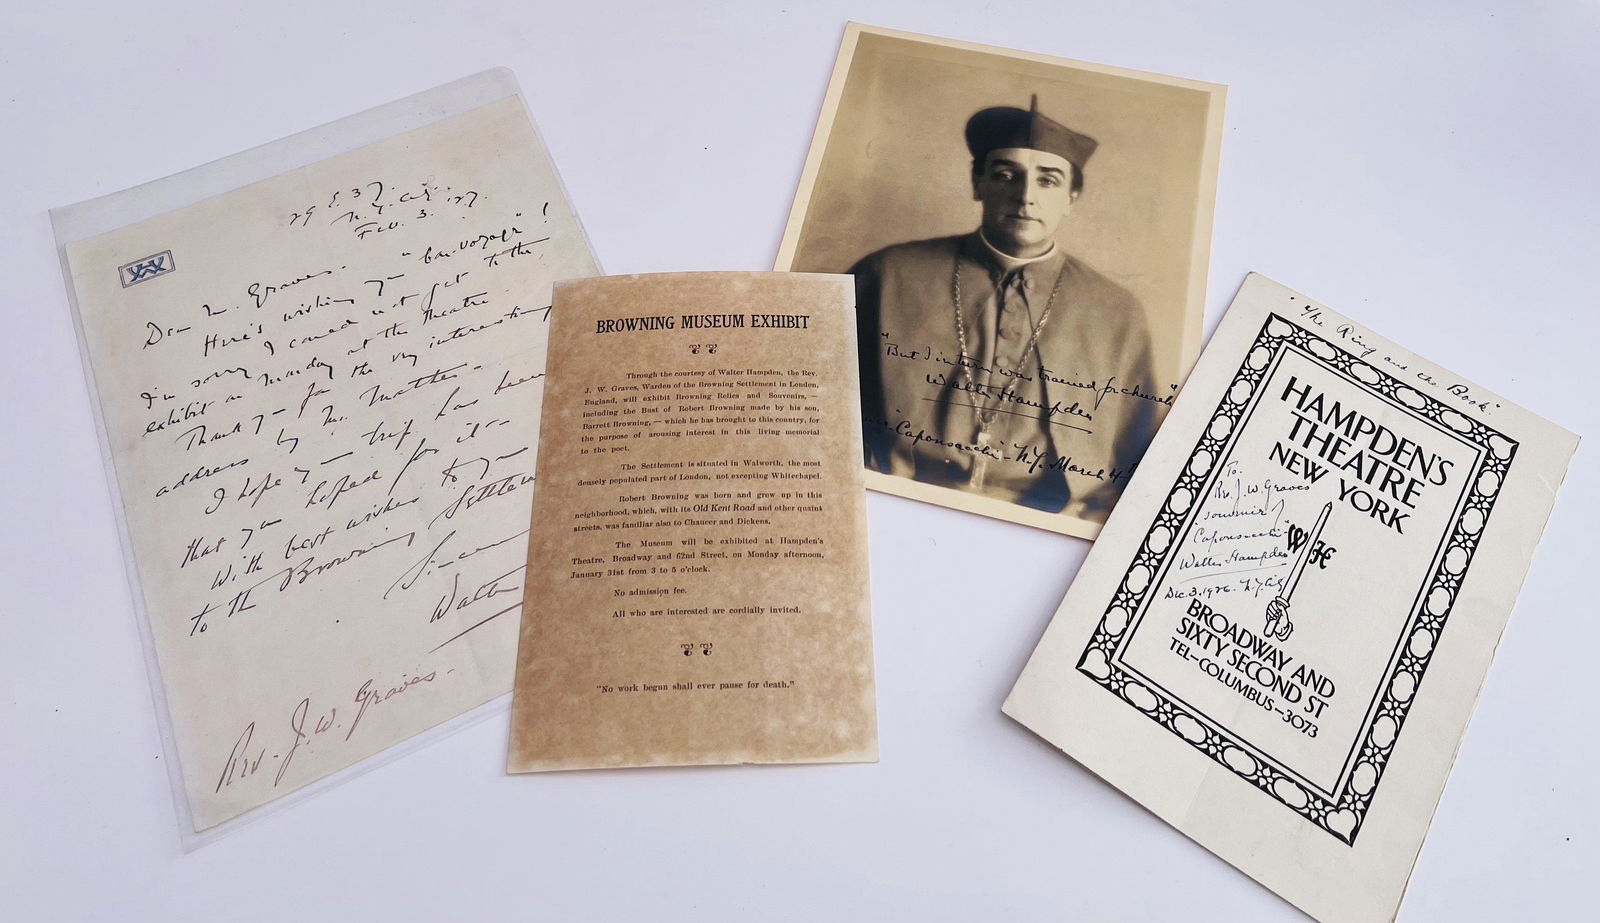 29 E. 37.
N.Y. City.
Feb. 3. '27.
Dear Mr. Graves.
Here's wishing you "bon-voyage"!
I'm sorry I could not get to the
exhibit on Monday at the theatre.
Thank you for the very interesting
address by Mr.
I hope your trip has been
that you hoped for it
With best wishes to you
to the Browning Settlem
Walter
Rev. J. W. Graves.
BROWNING MUSEUM EXHIBIT
Through the courtesy of Walter Hampden, the Rev.
J. W. Graves, Warden of the Browning Settlement in London,
England, will exhibit Browning Relics and Souvenirs, —
including the Bust of Robert Browning made by his son,
Barrett Browning, — which he has brought to this country, for
the purpose of arousing interest in this living memorial
to the poet.
The Settlement is situated in Walworth, the most
densely populated part of London, not excepting Whitechapel.
Robert Browning was born and grew up in this
neighborhood, which, with its Old Kent Road and other quaint
streets, was familiar also to Chaucer and Dickens.
The Museum will be exhibited at Hampden's
Theatre, Broadway and 62nd Street, on Monday afternoon,
January 31st from 3 to 5 o'clock.
No admission fee.
All who are interested are cordially invited.
"No work begun shall ever pause for death."
"But I in turn was trained for church"
Walter Hampden
"Caponsacchi" - N.Y. March 4
"The Ring and the Book."
HAMPDEN'S
THEATRE
NEW YORK
To.
Rev. J. W. Graves
souvenir of
"Caponsacchi"
Walter Hampden
Dec. 3. 1926. N.Y. City
W H
BROADWAY AND
SIXTY SECOND ST
TEL-COLUMBUS-3073